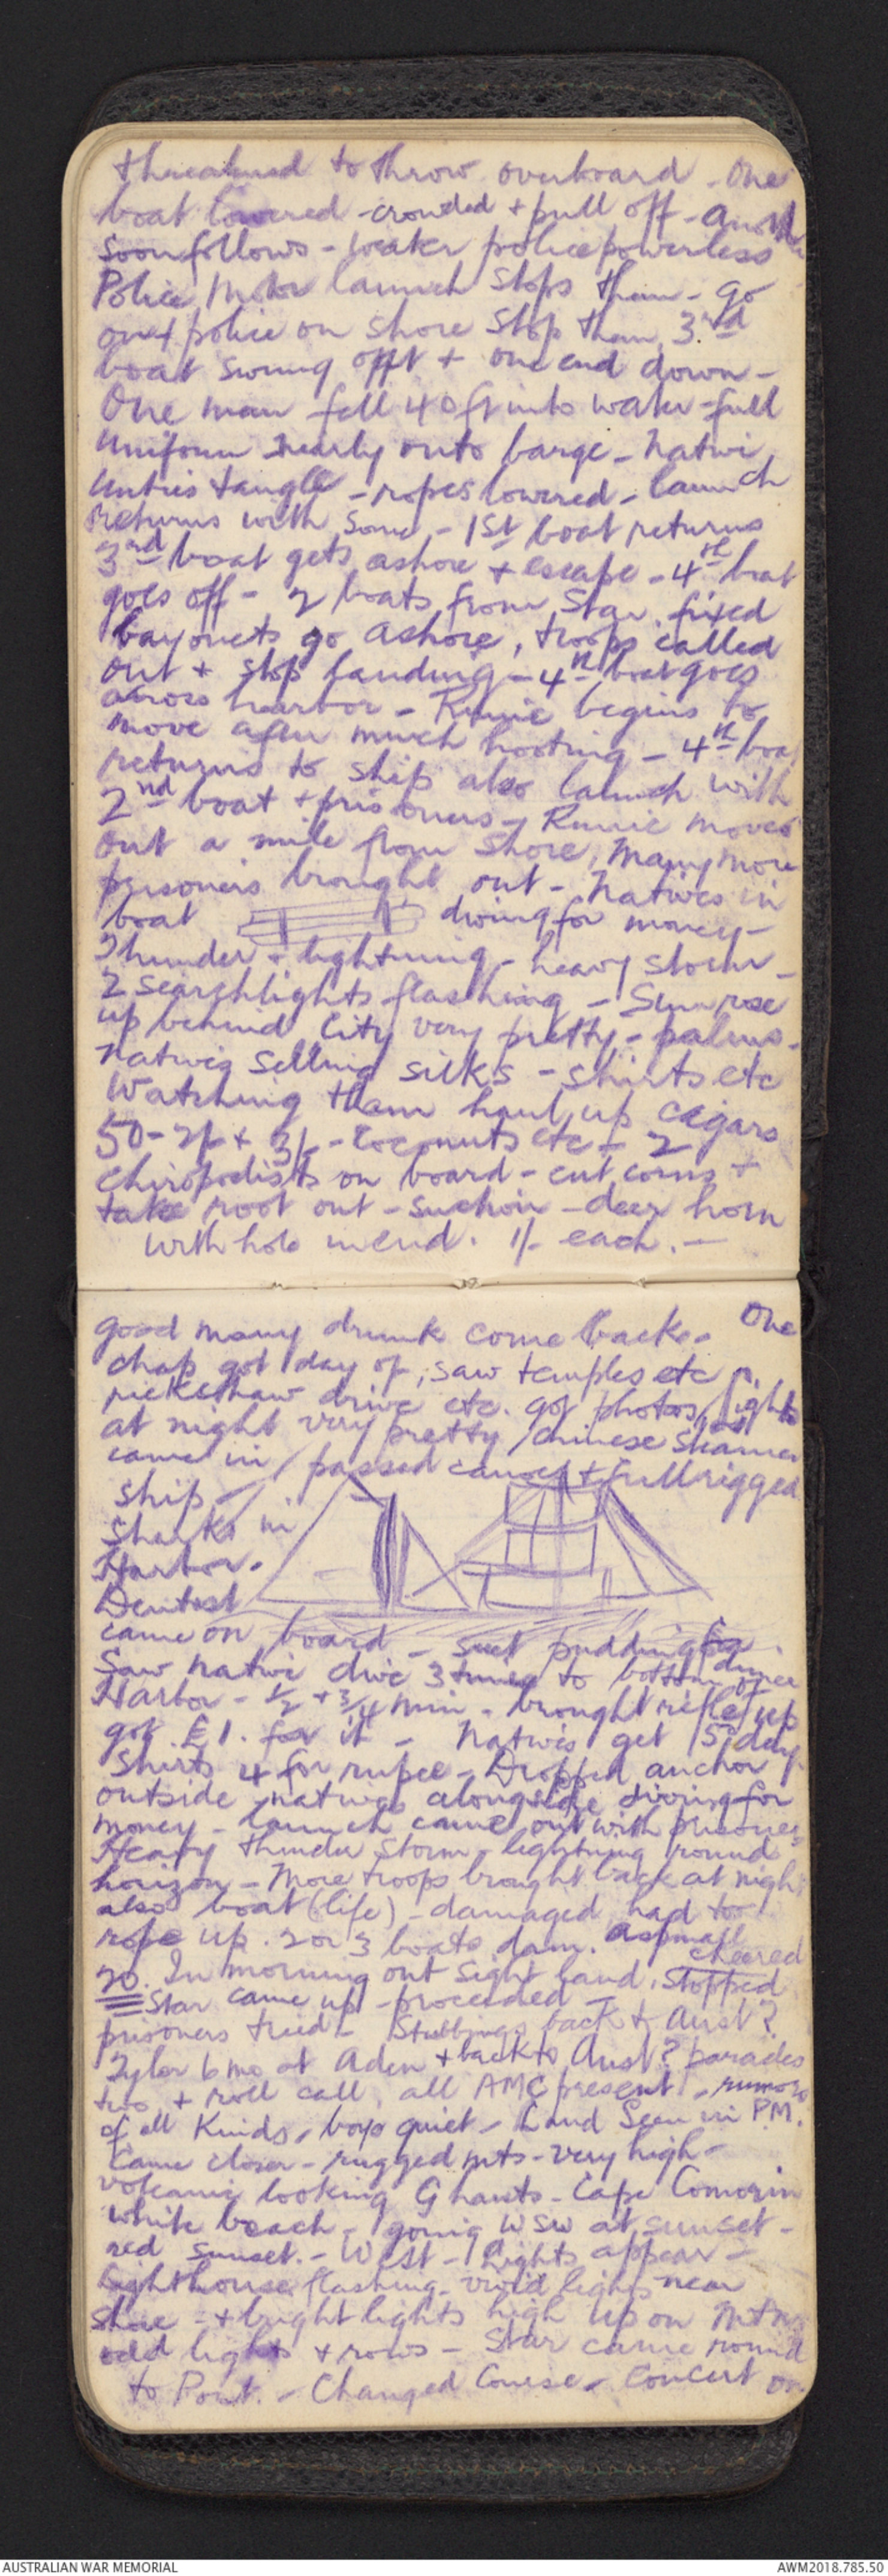 threatened to throw overboard - One
boat lowered - crowded + pull off - another
soon follows - water police powerless
Police Motor launch stops them - go
on + police on shore stop them 3rd
boat swung off + one end down -
One man fell 40 ft into water - full
uniform nearly onto barge - native
unties tangle - ropes lowered - launch
returns with some - 1st boat returns
3rd boat gets ashore + escape - 4th boat
goes off - 2 boats from Star, fixed
bayonets go ashore, troops called
out + stop landing - 4th boat goes
across harbor - Runic begins to
move after much hooting - 4th boat
returns to ship also launch with
2nd boat + prisoners - Runic moves
out a mile from shore, Many more
prisoners brought out - Natives in
boat diving for money -
Thunder + lightning - heavy storm -
2 searchlights flashing - Sun rose
up behind City very pretty - palms -
natives selling silks - shirts etc
Watching them haul up cigars
50 - 2/- + 3/- - Coconuts etc - 2
chiropodists on board - cut corns +
take root out - suction - deer horn
with hole in end. 1/- each. -
good many drunk come back - One
chap got day of, saw temples etc
rickshaw drive etc. got photos, lights
at night very pretty / chinese steamer
came in / passed canoes + full rigged
ship -
Sharks in
Harbor -
Dentist
came on board - suet pudding for
Saw native dive 3 times to bottom of dinner
Harbor - 1/2 + 3/4 min - brought rifle up
got £1. for it - Natives get 5d day
Shirts 4 for rupee - Dropped anchor
outside natives alongside diving for
money - launch came out with prisoners
Heavy thunder storm - lightning round
horizon - More troops brought back at night
also boat (life) - damaged had to
rope up. 2 or 3 boats dam.
cheered
20. In morning out sight land, stopped
Star came up - proceeded -
prisoners tried - Stubbings back to Aust?
Tyler 6 mo at Aden + back to Aust? parades
two + roll call, all AMC present - rumors
of all kinds - boys quiet - Land Seen in P.M.
Came closer - rugged mts - very high -
volcanic looking Ghauts - Cape Comorin
white beach - going WSW at sunset -
red sunset. - West - Lights appear -
lighthouse flashing - vivid lights near
shore - + bright lights high up on Mtns
odd lights + rows - Star came round
to Port. - Changed Course - Concert on
AUSTRALIAN WAR MEMORIAL
AWM2018.785.50